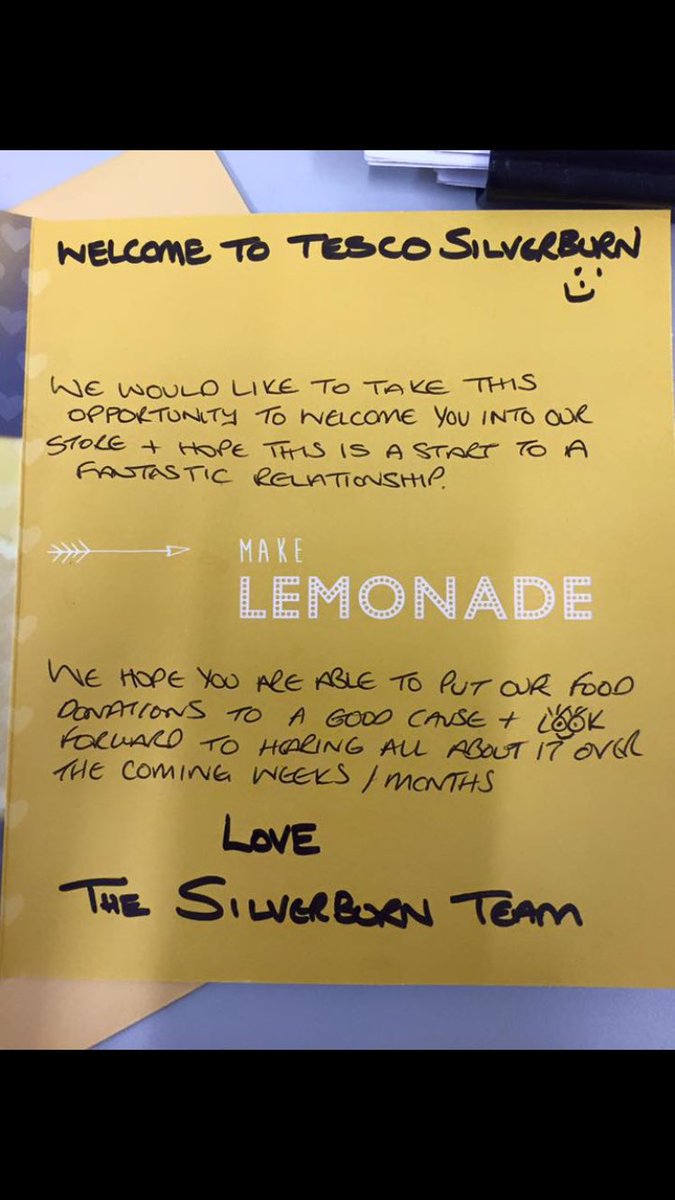 WELCOME TO TESCO SILVERBURN
WE WOULD LIKE TO TAKE THIS
OPPORTUNITY TO WELCOME YOU INTO OUR
STORE + HOPE THIS IS A START TO A
FANTASTIC RELATIONSHIP.
MAKE
LEMONADE
WE HOPE YOU ARE ABLE TO PUT OUR FOOD
DONATIONS TO A GOOD CAUSE + LOOK
FORWARD TO HEARING ALL ABOUT IT OVER
THE COMING WEEKS / MONTHS
LOVE
THE SILVERBURN TEAM